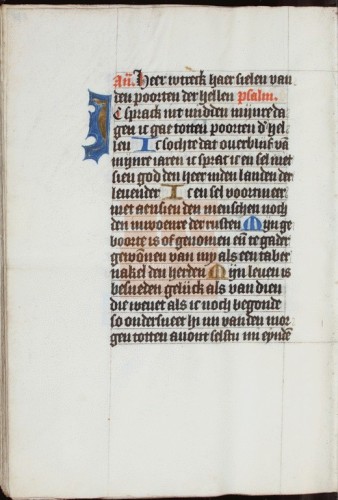 Añ. Heer wtreck haer sielen van
den poorten der hellen psalm.
Ic sprack int midden mijnre da
gen ic gae totten poorten d'hel
len Ic sochte dat overblijf van
mijnre iaren ic sprac ic en sel niet
sien god den heer inden landen der
levender Ic en sel voortmeer
niet aensien den menschen noch
den inwoenre der rusten Mijn ge
boorte is of genomen eñ te gader
gewonnen van mij als een taber
nakel den herden Mijn leven is
besneden gelijck als van dien
die wevet als ic noch begonde
so ondersneet hi mi van den mor
gen totten avont selstu mi eyndē